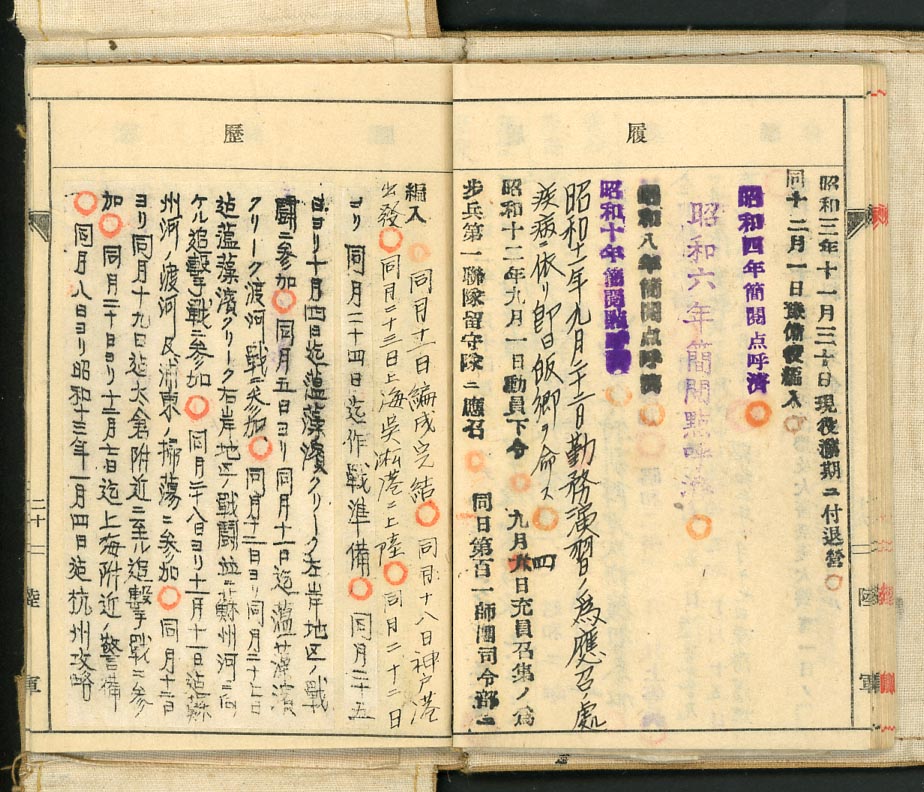 履
昭和三年十一月三十日現役満期ニ付退営
同十二月一日豫備役編入
昭和四年簡閲点呼済
昭和六年簡閲點呼済
昭和八年簡閲点呼済
昭和十年簡閲點呼済
昭和十一年九月二十二日勤務演習ノ為應召處
疾病ニ依リ即日飯郷ヲ命ス
昭和十二年九月一日動員下令 九月四日充員召集ノ為
歩兵第一聯隊留守隊ニ應召 同日第百一師團司令部ニ
歴
編入 同月十一日編成完結 同月十八日神戸港
出發 同月二十三日上海呉淞港ニ上陸 同月二十二日
ヨリ同月二十四日迄作戦準備 同月二十五
日ヨリ十月四日迄薀藻濱クリーク左岸地区ノ戦
闘ニ参加 同月五日ヨリ同月十一日迄薀藻濱
クリーク渡河戦ニ参加 同月十二日ヨリ同月二十七日
迄薀藻濱クリーク右岸地区ノ戦闘並ニ蘇州河ニ向
ケル追撃戦ニ参加 同月二十八日ヨリ十一月十一日迄蘇
州河ノ渡河及浦東ノ掃蕩ニ参加 同月十二日
ヨリ同月十九日迄太倉附近ニ至ル追撃戦ニ参
加 同月二十日ヨリ十二月七日迄上海附近ノ警備
同月八日ヨリ昭和十三年一月四日迄杭州攻略
二十
陸
軍